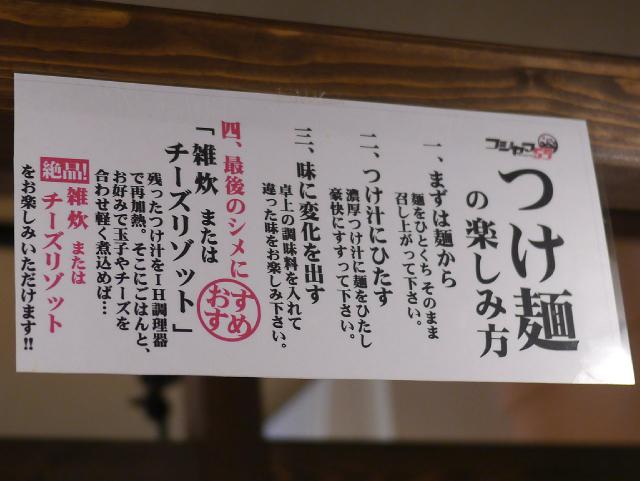 フジヤマ55
つけ麺
の楽しみ方
一、まずは麺から
麺をひとくち そのまま
召し上がって下さい。
二、つけ汁にひたす
濃厚つけ汁に麺をひたし
豪快にすすって下さい。
三、味に変化を出す
卓上の調味料を入れて
違った味をお楽しみ下さい。
四、最後のシメに
おすすめ
「雑炊 または
チーズリゾット」
残ったつけ汁をIH調理器
で再加熱。そこにごはんと、
お好みで玉子やチーズを
合わせ軽く煮込めば…
絶品! 雑炊 または
チーズリゾット
をお楽しみいただけます!!